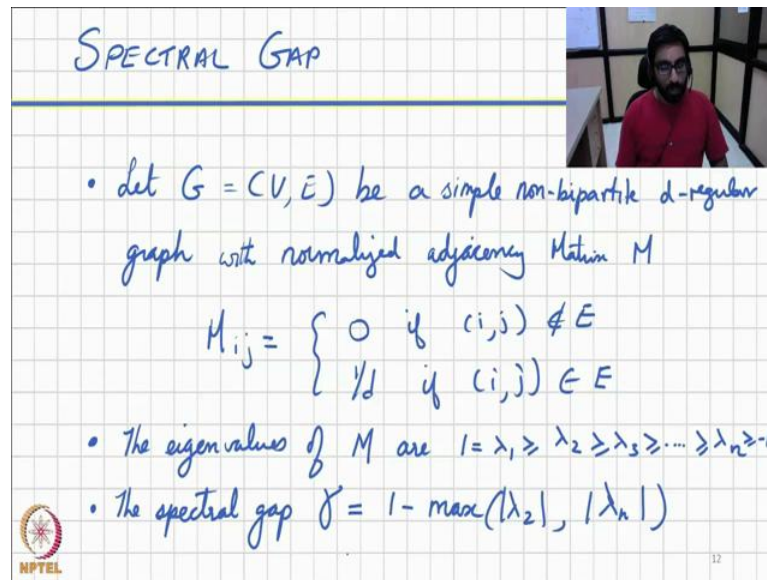 SPECTRAL GAP
• Let G = (V, E) be a simple non-bipartite d-regular
graph with normalized adjacency Matrix M
M_ij = { 0 if (i,j) ∉ E
1/d if (i,j) ∈ E
• The eigenvalues of M are 1 = λ₁ ≥ λ₂ ≥ λ₃ ≥ ... ≥ λₙ ≥ -
• The spectral gap γ = 1 - max(|λ₂|, |λₙ|)
NPTEL
12